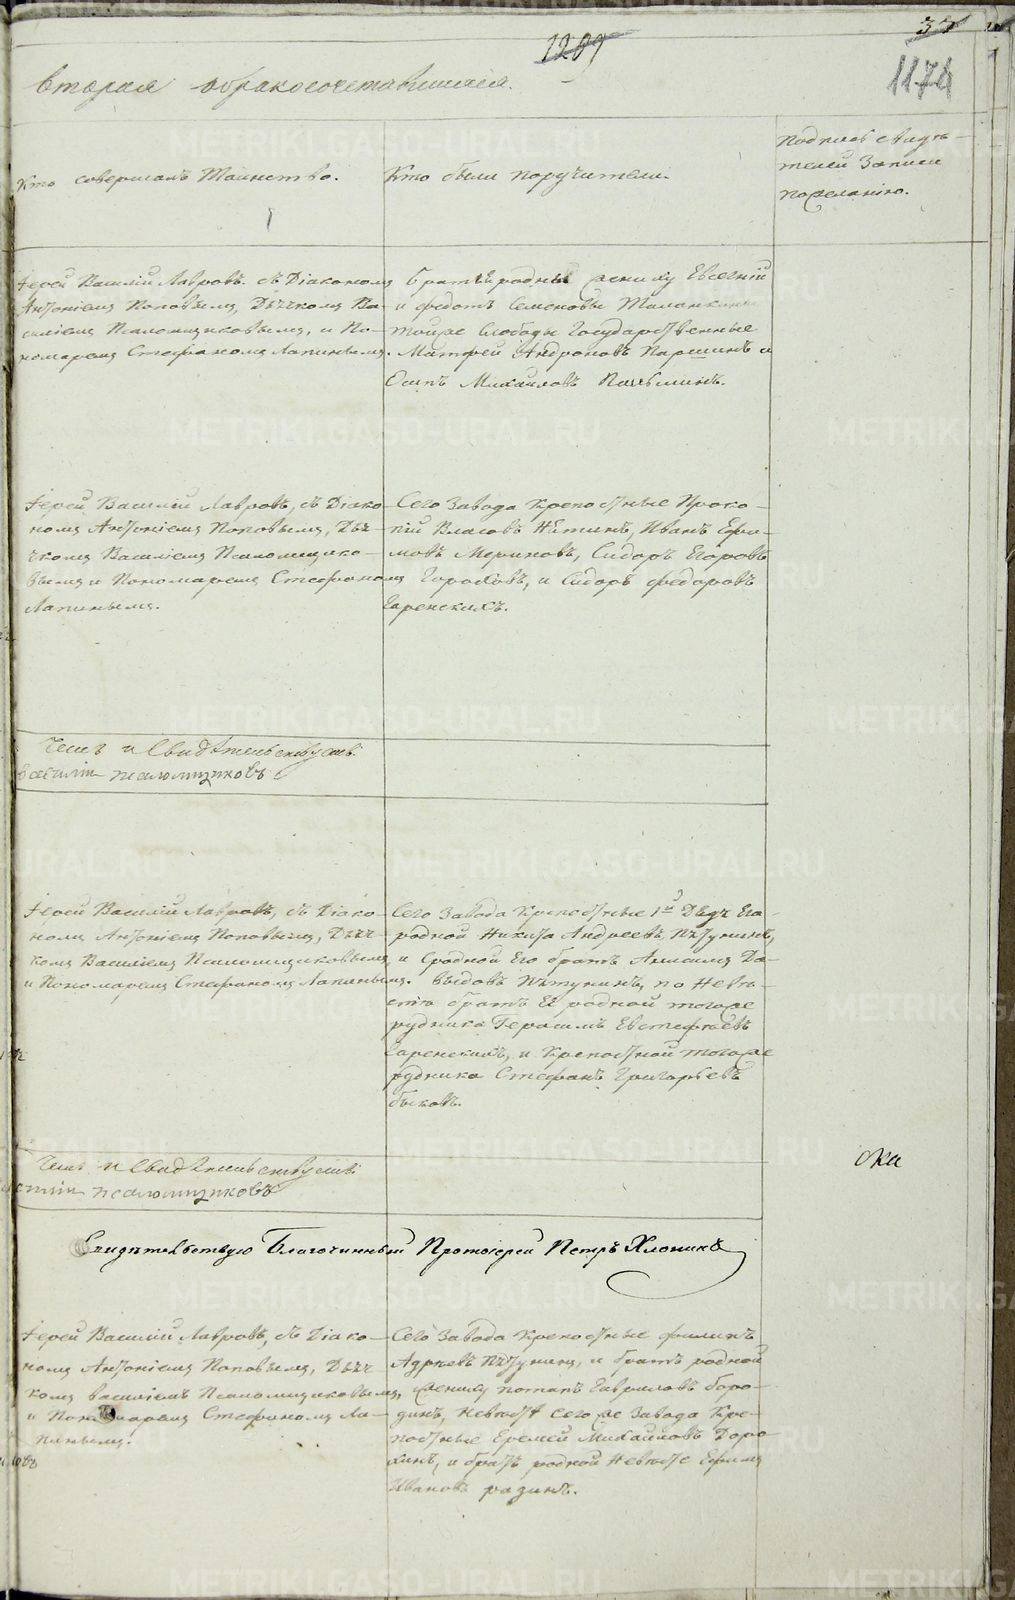 1209
37
1174
вторая о бракосочетавшихся.
Кто совершалъ Таинство.
Кто были поручители.
Подписъ свидѣ-
телей Записи
по желанію.
Іерей Василій Лавровъ. съ Діакономъ
Антоніемъ Поповымъ, Дьячкомъ Ва-
силіемъ Псаломщиковымъ, и По-
номаремъ Стефаномъ Лапинымъ.
Братья родные жениху Евсегній
и Федотъ Семеновы
той же Слободы Государственные
Матфей Андроновъ Паршинъ и
Осипъ Михайловъ
Іерей Василій Лавровъ, съ Діако-
номъ Антоніемъ Поповымъ, Дья-
чкомъ Василіемъ Псаломщико-
вымъ и Пономаремъ Стефаномъ
Лапинымъ.
Сего Завода Крепостные Проко-
пій Власовъ Иванъ Ефи-
мовъ Мериновъ, Сидоръ Егоровъ
Гороховъ, и Сидоръ Федоровъ
Гаренскихъ.
Чемъ и Свидѣтельствуетъ
Василій Псаломщиковъ
Іерей Василій Лавровъ, съ Діако-
номъ Антоніемъ Поповымъ, Дьяч-
комъ Василіемъ Псаломщиковымъ,
и Пономаремъ Стефаномъ Лапинымъ.
Сего Завода Крепостные 1й Дядя Его
родной Никита Андреевъ Пѣтунинъ,
и Сродной Его братъ Да-
выдовъ Пѣтунинъ, по Невѣ-
стѣ братъ Ея родной тогоже
рудника Герасимъ Евстифѣевъ
Гаренскихъ, и Крепостной тогоже
рудника Стефанъ Григорьевъ
Быковъ.
Чемъ и Свидѣтельствуетъ
Псаломщиковъ
Свидѣтельствую Благочинный Протоіерей Петръ Хлопинъ
Іерей Василій Лавровъ, съ Діако-
номъ Антоніемъ Поповымъ, Дьяч-
комъ Василіемъ Псаломщиковымъ,
и Пономаремъ Стефаномъ Ла-
пинымъ.
Сего Завода Крепостные Филипъ
Пѣтунинъ, и братъ родной
жениху Потапъ Гавриловъ Боро-
динъ, Невѣсте Сего же Завода Кре-
постные Еремей Михайловъ Доро-
хинъ, и братъ родной Невѣсте Ефимъ
Ивановъ Разинъ.
METRIKI.GASO-URAL.RU